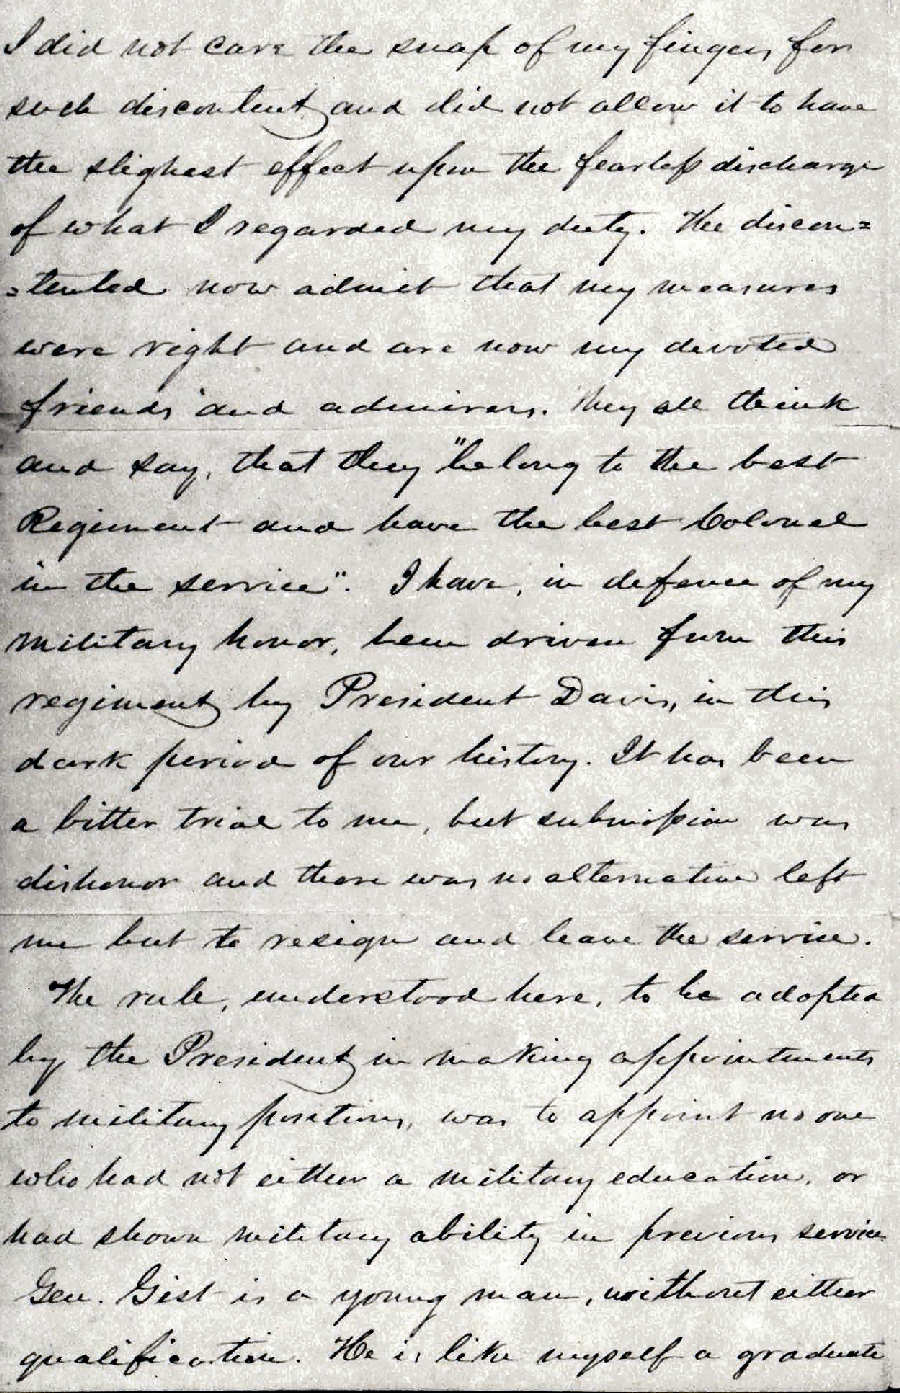 I did not care the snap of my finger, for
such discontent and did not allow it to have
the slighest effect upon the fearless discharge
of what I regarded my duty. The discon=
=tented now admit that my measures
were right and are now my devoted
friends and admirers. They all think
and say, that they "belong to the best
Regiment and have the best Colonel
in the service". I have, in defence of my
military honor, been driven from this
regiment by President Davis, in this
dark period of our history. It has been
a bitter trial to me, but submission was
dishonor and there was no alternative left
me but to resign and leave the service.
The rule, understood here, to be adopted
by the President in making appointments
to military positions, was to appoint no one
who had not either a military education, or
had shown military ability in previous service
Gen. Gist is a young man, without either
qualification. He is like myself a graduate